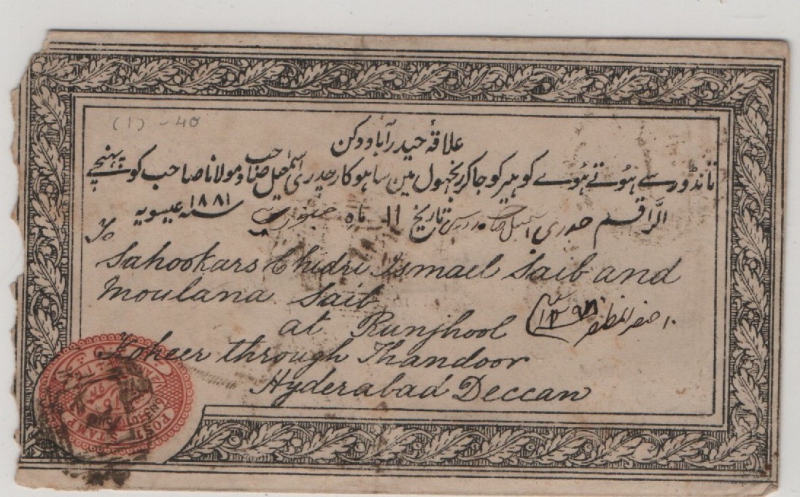 (1) - 40
علاقۂ حیدرآباد دکن
تانڈور سے ہوتے ہوے کوہیر کو جاکر نجہول مین ساہوکار چیدری اسمٰعیل صاحب و مولانا صاحب کو پہنچے
الراقم چیدری اسمٰعیل تاریخ ۱۱ ماہ جنوری سنہ ۱۸۸۱ عیسویہ
To
Sahookars Chidri Ismael Saib and
Moulana Saib
at Runjhool
Koheer through Thandoor
Hyderabad Deccan
صفر المظفر ۱۲۹۸
POST STAMP